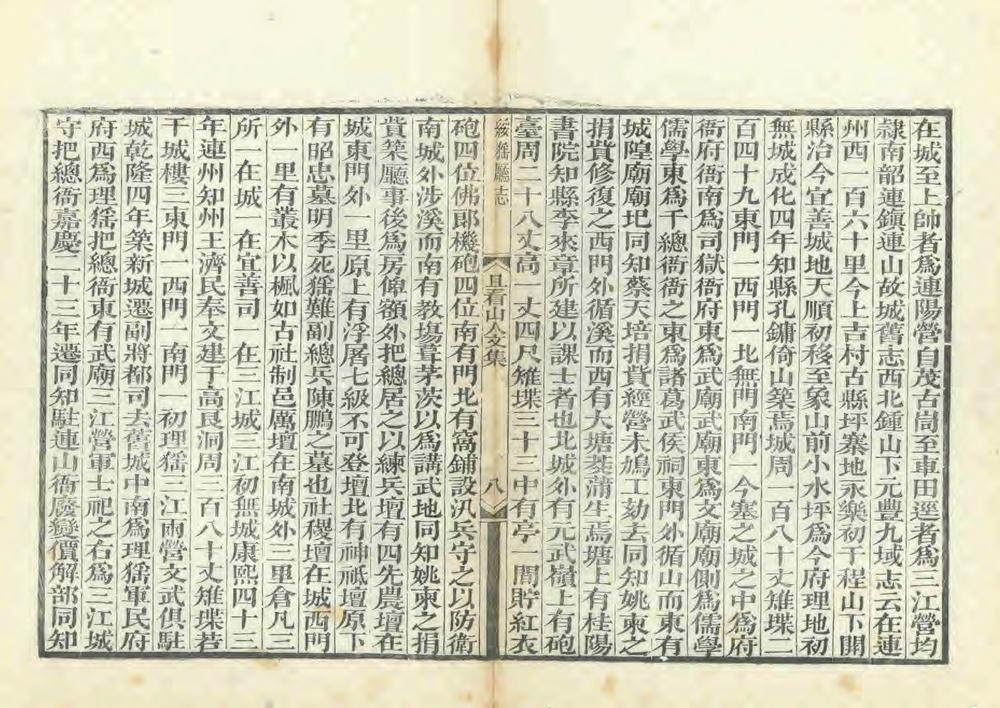 在城至上帥者為連陽營自茂古峝至車田逕者為三江營均
隸南韶連鎮連山故城舊志西北鍾山下元豐九域志云在連
州西一百六十里今上吉村古縣坪寨地永樂初于程山下開
縣治今宜善城地天順初移至象山前小水坪為今府理地初
無城成化四年知縣孔鏞倚山築焉城周一百八十丈雉堞二
百四十九東門一西門一北無門南門一今塞之城之中為府
衙府衙南為司獄衙府東為武廟武廟東為文廟廟側為儒學
儒學東為千總衙衙之東為諸葛武侯祠東門外循山而東有
城隍廟廟圯同知蔡天培捐貲經營未鳩工劾去同知姚柬之
捐貲修復之西門外循溪而西有大塘茭蒲生焉塘上有桂陽
書院知縣李來章所建以課士者也北城外有元武嶺上有砲
臺周二十八丈高一丈四尺雉堞三十三中有亭一間貯紅衣
綏猺廳志 且看山人文集 八
砲四位佛郎機砲四位南有門北有窩鋪設汛兵守之以防衛
南城外涉溪而南有教塲葺茅茨以為講武地同知姚柬之捐
貲築廳事後為房俾額外把總居之以練兵壇有四先農壇在
城東門外一里原上有浮屠七級不可登壇北有神祗壇原下
有昭忠墓明季死猺難副總兵陳鵬之墓也社稷壇在城西門
外一里有叢木以楓如古社制邑厲壇在南城外三里倉凡三
所一在城一在宜善司一在三江城三江初無城康熙四十三
年連州知州王濟民奉文建于高良洞周三百八十丈雉堞若
干城樓三東門一西門一南門一初理猺三江兩營文武俱駐
城乾隆四年築新城遷副將都司去舊城中南為理猺軍民府
府西為理猺把總衙東有武廟三江營軍士祀之右為三江城
守把總衙嘉慶二十三年遷同知駐連山衙廢變價解部同知